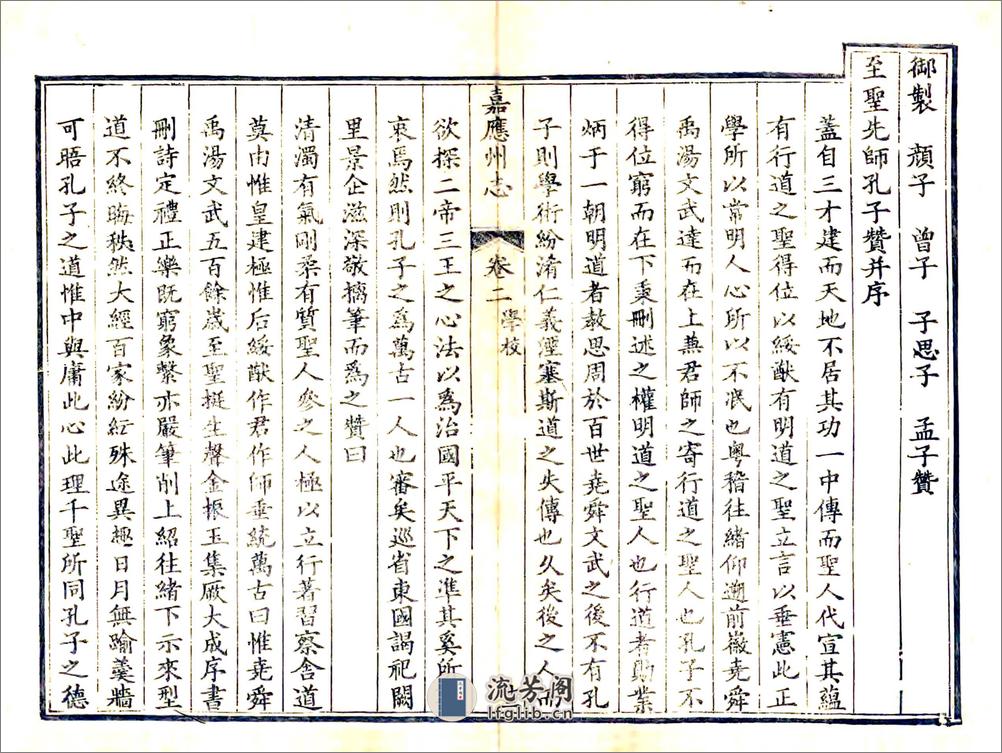 御製 顔子 曾子 子思子 孟子贊
至聖先師孔子贊并序
蓋自三才建而天地不居其功一中傳而聖人代宣其蘊
有行道之聖得位以綏猷有明道之聖立言以垂憲此正
學所以常明人心所以不泯也粤稽往緒仰遡前徽堯舜
禹湯文武達而在上兼君師之寄行道之聖人也孔子不
得位窮而在下秉刪述之權明道之聖人也行道者勛業
炳于一朝明道者教思周於百世堯舜文武之後不有孔
子則學術紛淆仁義湮塞斯道之失傳也久矣後之人而
嘉應州志 卷二 學校
欲探二帝三王之心法以爲治國平天下之凖其奚所
衷焉然則孔子之爲萬古一人也審矣巡省東國謁祀闕
里景企滋深敬摛筆而爲之贊曰
清濁有氣剛柔有質聖人參之人極以立行著習察舍道
莫由惟皇建極惟后綏猷作君作師垂統萬古曰惟堯舜
禹湯文武五百餘歳至聖挺生聲金振玉集厥大成序書
刪詩定禮正樂既窮象繋亦嚴筆削上紹往緒下示來型
道不終晦秩然大經百家紛紜殊途異趣日月無踰羹牆
可晤孔子之道惟中與庸此心此理千聖所同孔子之德
流芳阁
lfglib.cn